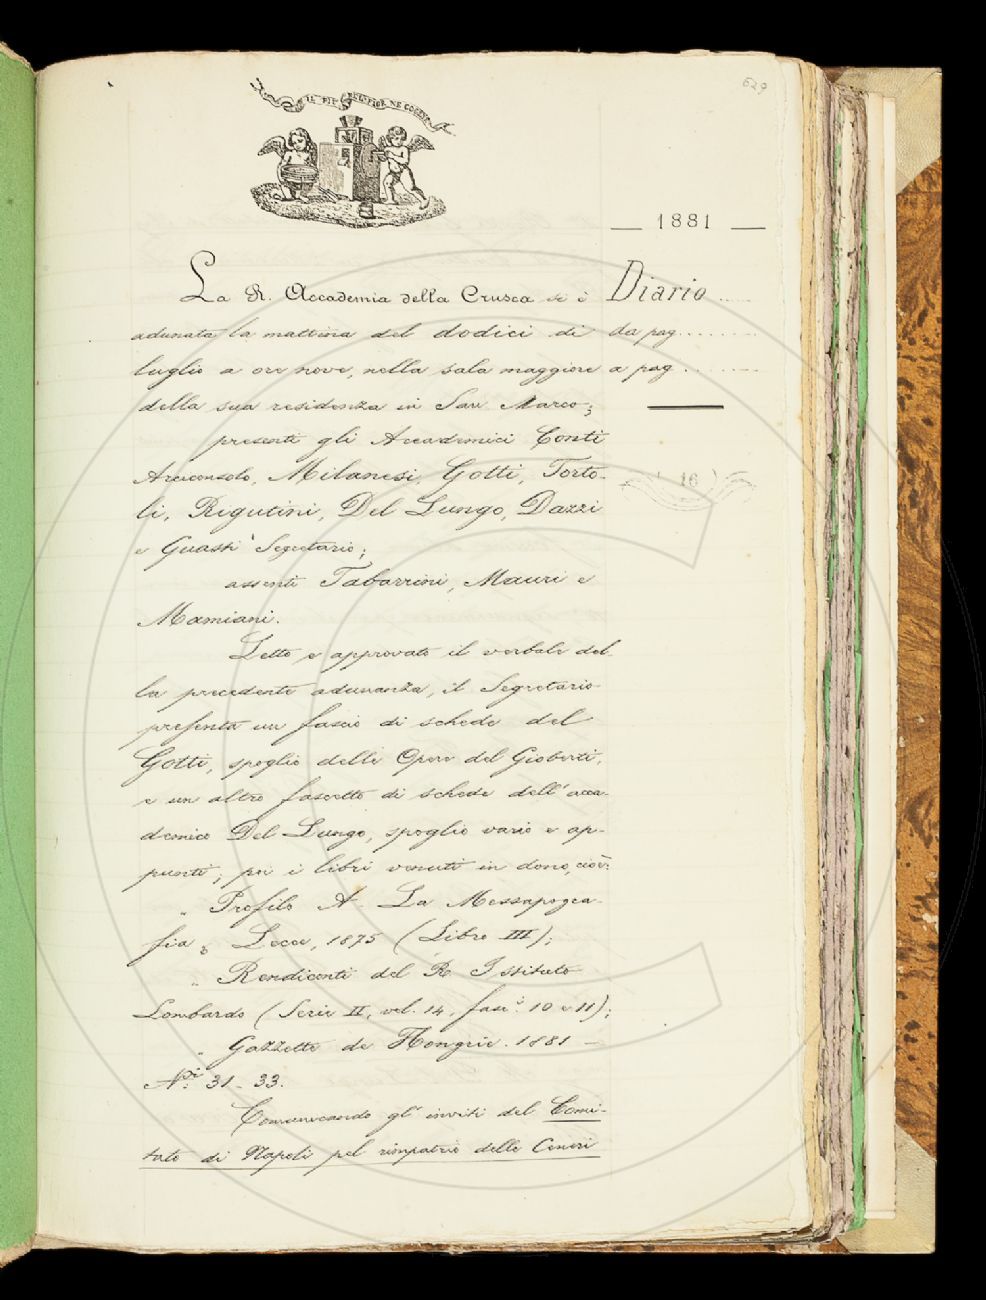 IL PIÙ BEL FIOR NE COGLIE
629
— 1881 —
La R. Accademia della Crusca si è
Diario ......
adunata la mattina del dodici di
da pag. ........
luglio a ore nove, nella sala maggiore
a pag ........
della sua residenza in San Marco;
presenti gli Accademici Conti
Arciconsolo, Milanesi, Gotti, Torto-
16
li, Rigutini, Del Lungo, Dazzi
e Guasti Segretario;
assenti Tabarrini, Mauri e
Mamiani.
Letto e approvato il verbale del
la precedente adunanza, il Segretario
presenta un fascio di schede del
Gotti, spoglio delle Opere del Gioberti,
e un altro fascetto di schede dell'acca-
demico Del Lungo, spoglio vario e ap-
punti; poi i libri venuti in dono, cioè:
„ Profilo A. La Messapogra-
fia; Lecce, 1875 (Libro III);
„ Rendiconti del R. Istituto
Lombardo (Serie II, vol. 14, fasc.i 10 e 11);
„ Gazzette de Hongrie. 1881 —
N.i 31-33.
Comunicando gl'inviti del Comi-
tato di Napoli pel rimpatrio delle Ceneri